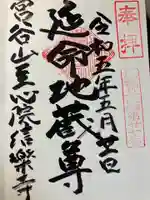 奉拝
令和五年五月廿一日
延命地蔵尊
宮谷山至心院信樂寺